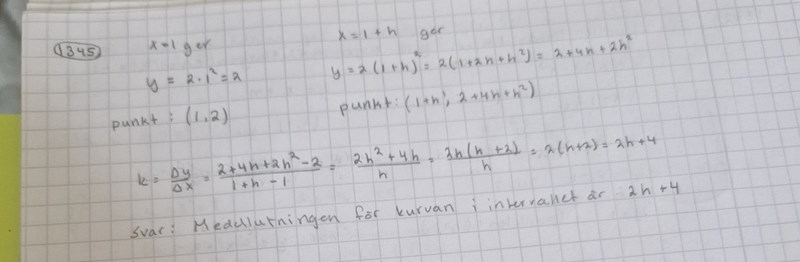 1345
x=1 ger
y = 2·1²=2
punkt : (1,2)
x = 1 + h ger
y = 2(1+h)² = 2(1+2h+h²) = 2+4h+2h²
punkt: (1+h; 2+4h+h²)
k = Δy/Δx = (2+4h+2h²-2)/(1+h-1) = (2h²+4h)/h = 2h(h+2)/h = 2(h+2) = 2h+4
Svar: Medellutningen för kurvan i intervallet är 2h+4